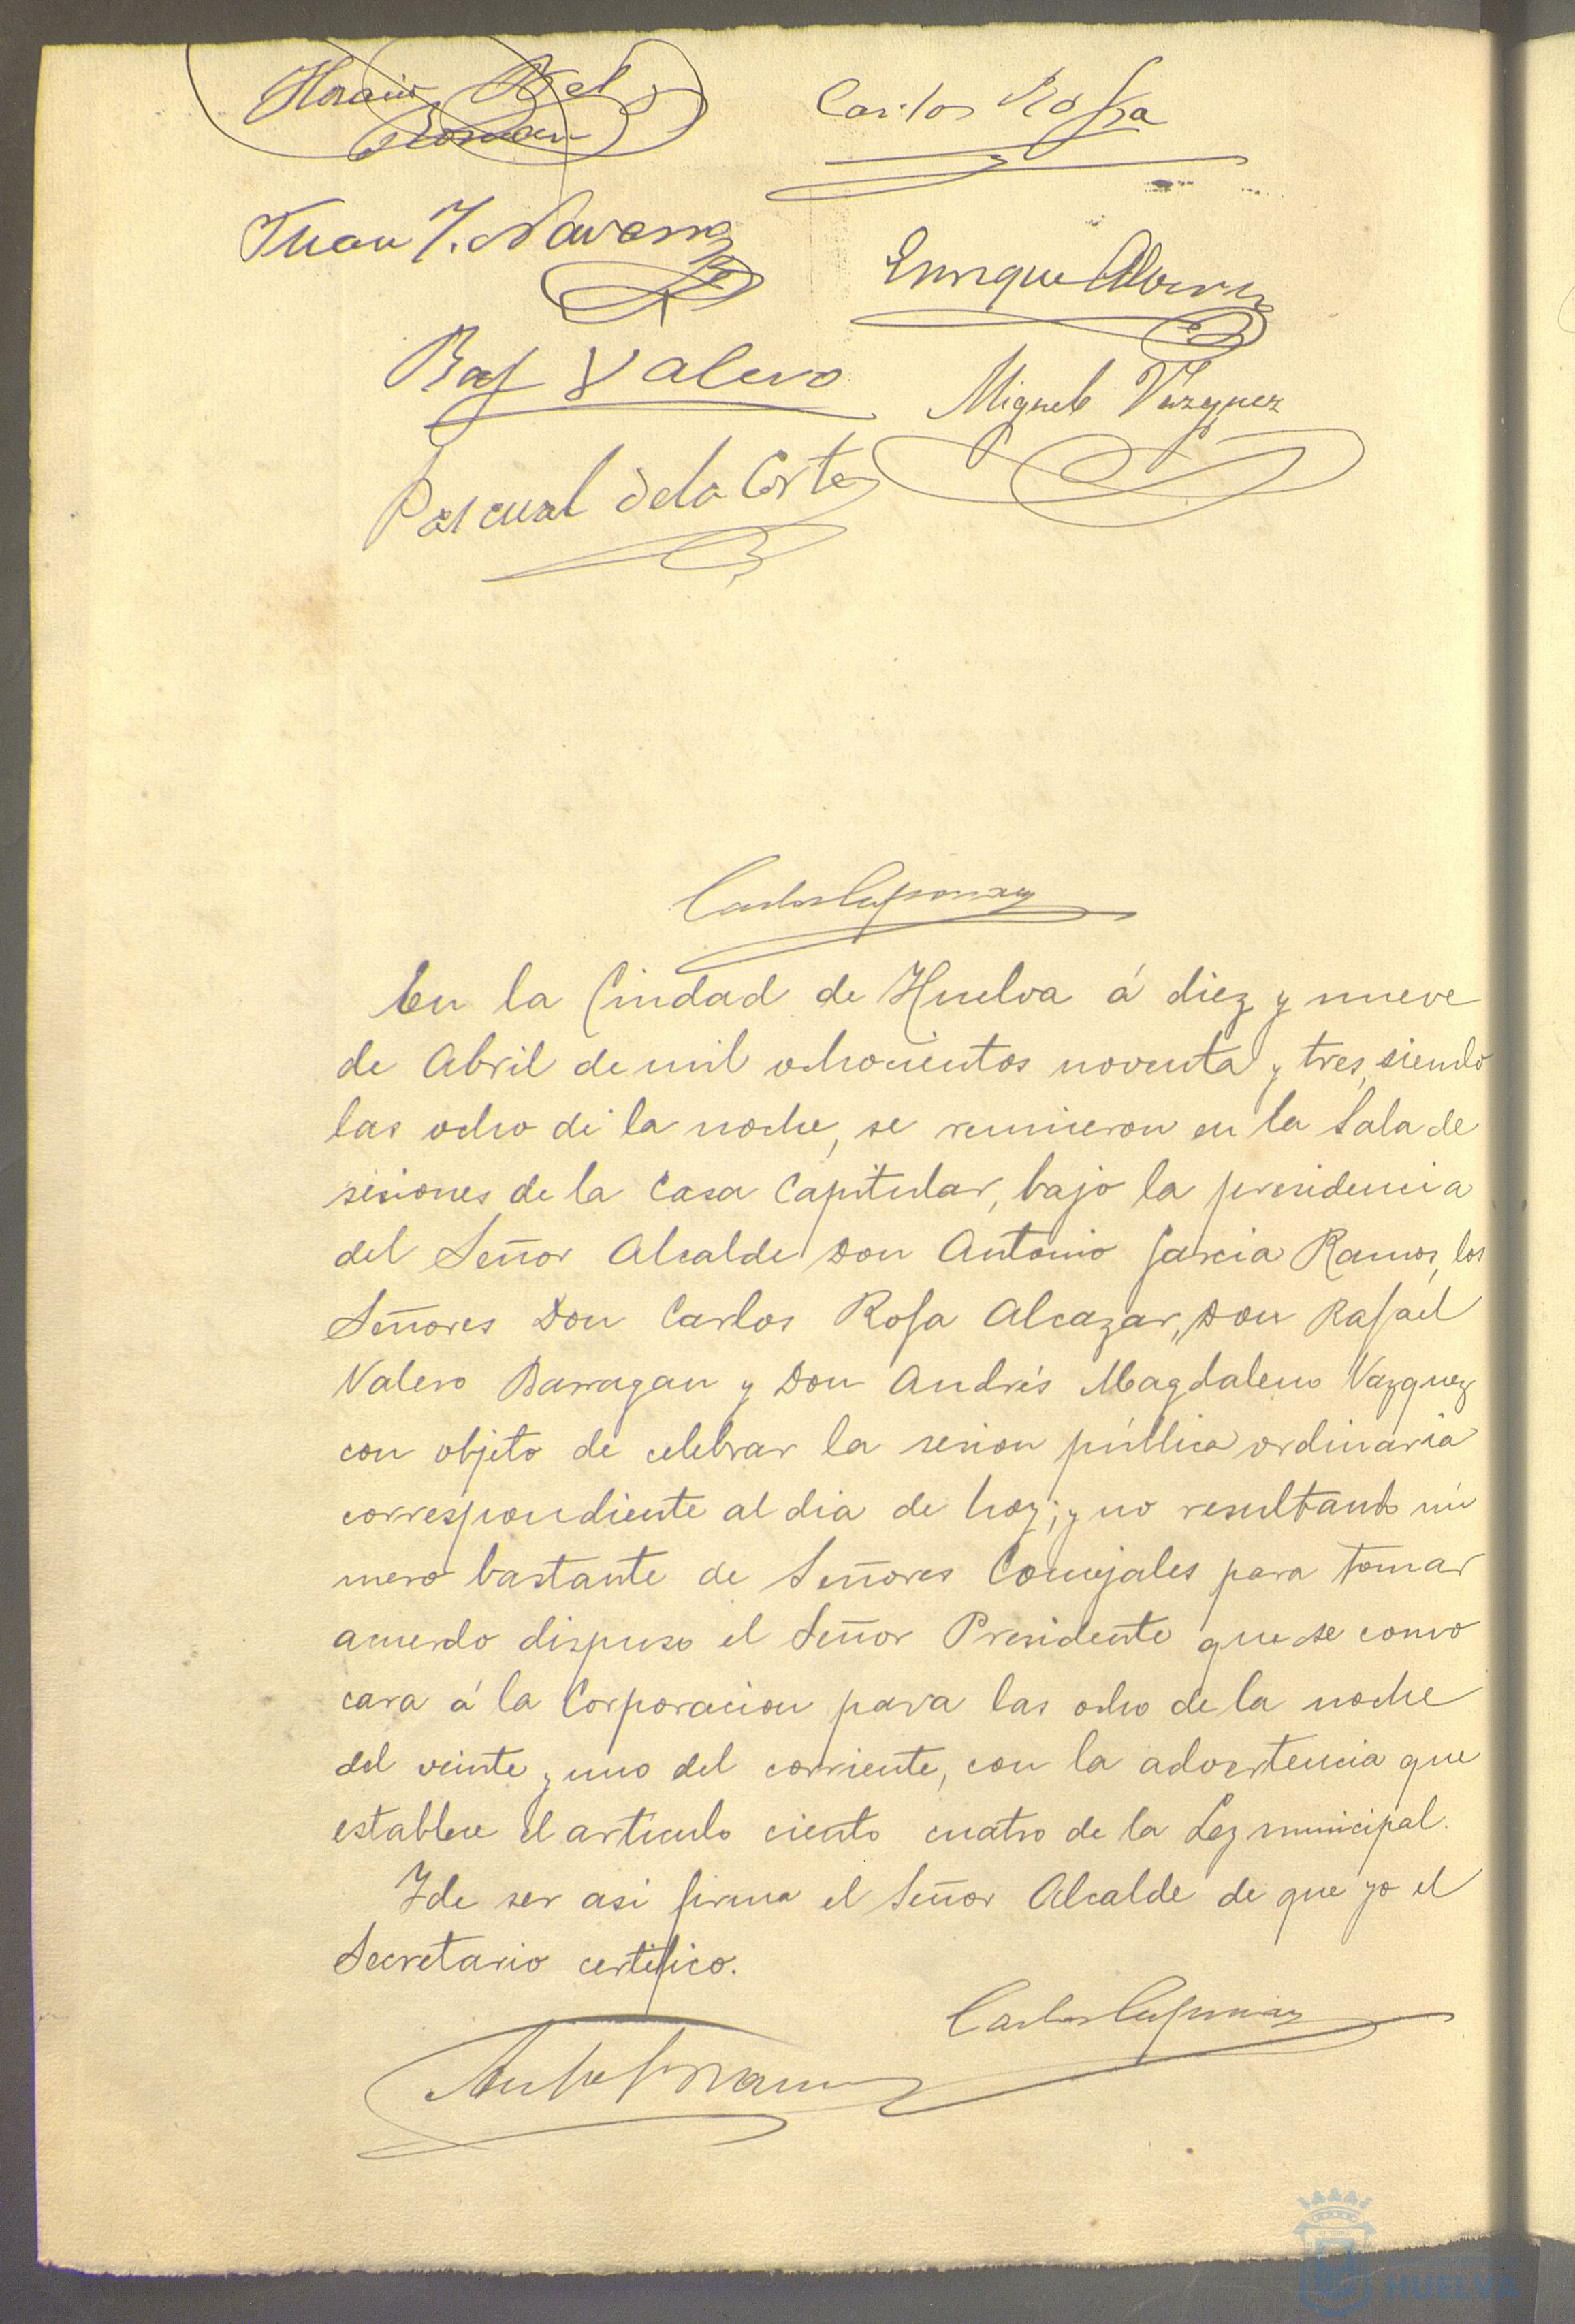 Horacio Bel
Roman
Carlos Rofa
Juan J. Navarro
Enrique Alvarez
Raf Valero
Miguel Vazquez
Pascual de la Corte
En la Ciudad de Huelva á diez y nueve
de Abril de mil ochocientos noventa y tres, siendo
las ocho de la noche, se reunieron en la Sala de
sesiones de la Casa Capitular, bajo la presidencia
del Señor Alcalde Don Antonio Garcia Ramos, los
Señores Don Carlos Rofa Alcazar, Don Rafael
Valero Barragan y Don Andrés Magdaleno Vazquez
con objeto de celebrar la sesion pública ordinaria
correspondiente al dia de hoy; y no resultando nú
mero bastante de Señores Concejales para tomar
acuerdo dispuso el Señor Presidente que se convo
cara á la Corporacion para las ocho de la noche
del veinte y uno del corriente, con la advertencia que
establece el articulo ciento cuatro de la Ley municipal.
Y de ser asi firma el Señor Alcalde de que yo el
Secretario certifico.
HUELVA